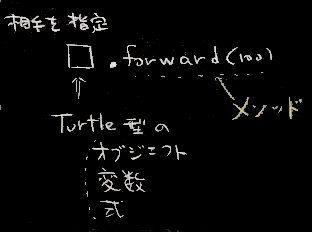 相手を指定
□.forward(100)
メソッド
Turtle型の
オブジェクト
変数
式